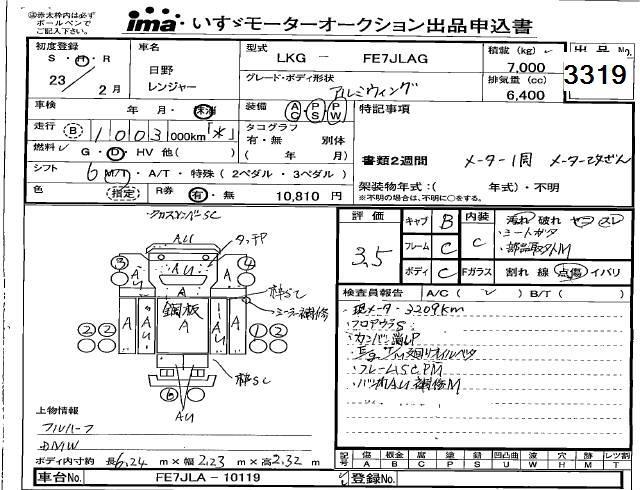 ㊟赤太枠内は必ず
ボールペンで
ご記入下さい。
ima いすゞモーターオークション出品申込書
初度登録
S・H・R
23 年 2月
車名
日野
レンジャー
型式
LKG － FE7JLAG
グレード・ボディ形状
アルミウィング
積載 (kg)
7,000
排気量 (cc)
6,400
出品No.
3319
車検 年・月・抹消
装備 AC PS PW
特記事項
走行 B 1003 000km「*」
タコグラフ
有・無 別体
( 年 月)
燃料 G・D・HV 他( )
書類2週間 メーター1周 メーター改ざん
シフト 6 M/T・A/T・特殊(2ペダル・3ペダル)
色 (指定) R券 有・無 10,810 円
架装物年式:( 年式)・不明
※不明の場合は、不明に○をする。
評価 3.5
キャブ B
フレーム C
ボディ C
内装 C
汚れ 破れ ヤニ スレ
・シートガタ
・部品取タトM
Fガラス 割れ 線 点傷 イバリ
検査員報告 A/C( ) B/T( )
・現メータ・3209km
・フロアウラS
・カンバン消しP
・フレームSC PM
・バンパAU補修M
AU
タッチP
枠SC
ミラー補修
鋼板
A
AU
枠SC
AU
上物情報
フルハーフ
DMW
ボディ内寸約 長6.24 m×幅2.23 m×高2.32 m
記号 傷 A 板金 B 腐 C 塗 P 錆 S 凹凸曲 U 波 W 穴 H 跡 M レツ割 T
車台No. FE7JLA－10119
登録No.